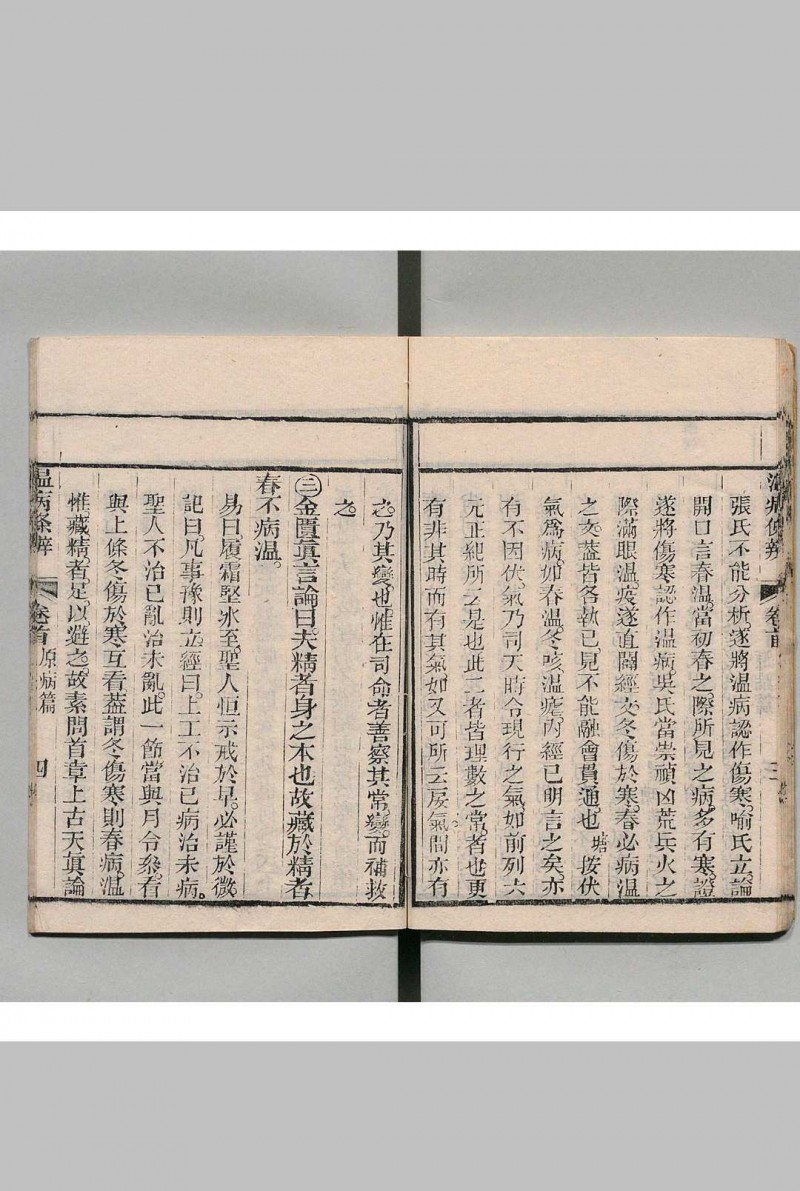 張氏不能分析。遂將温病認作傷寒。喻氏立論
開口言春温。當初春之際所見之病。多有寒。證
遂將傷寒認作温病。吳氏當崇禎凶荒兵火之
際滿眼温疫。遂直闢經文冬傷於寒。春必病温
之文。蓋皆各執己見不能融會貫通也 瑭 按伏
氣爲病。如春温。冬咳。温瘧。內經已明言之矣。亦
有不因伏。氣乃司天時令現行之氣。如前列六
元正紀所云是也此二者皆理數之常。者也。更
有非其時而有其氣。如又可所云戾氣。間亦有
之。乃其變。也惟在司命者善察其常。變。而補救
之。
㊂金匱眞言論曰。夫精者身之本也。故藏於精者
春不病温。
易曰。履霜堅冰至。聖人恒示戒於早。必謹於微
記曰。凡事豫則立。經曰。上工不治已病治未病。
聖人不治已亂治未亂。此一節當與月令參。看
與上條冬傷於寒互看蓋謂冬傷寒則春病。温
惟藏精。者。足以避之。故素問首章上古天眞論
温病條辨 卷首 原病篇 四